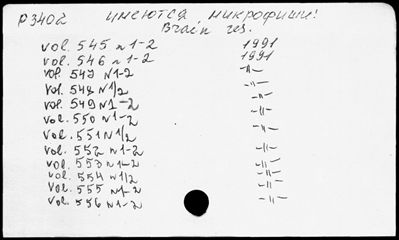 p3402 имеются микрофиши!
Brain res.
vol. 545 n 1-2 1991
vol. 546 n 1-2 1991
vol. 547 N1-2 -"-
vol. 548 N1/2 -"-
vol. 549 N1-2 -"-
vol. 550 N1-2 -"-
vol. 551 N1/2 -"-
vol. 552 N1-2 -"-
vol. 553 N1-2 -"-
vol. 554 N1/2 -"-
vol. 555 N1-2 -"-
vol. 556 N1-2 -"-